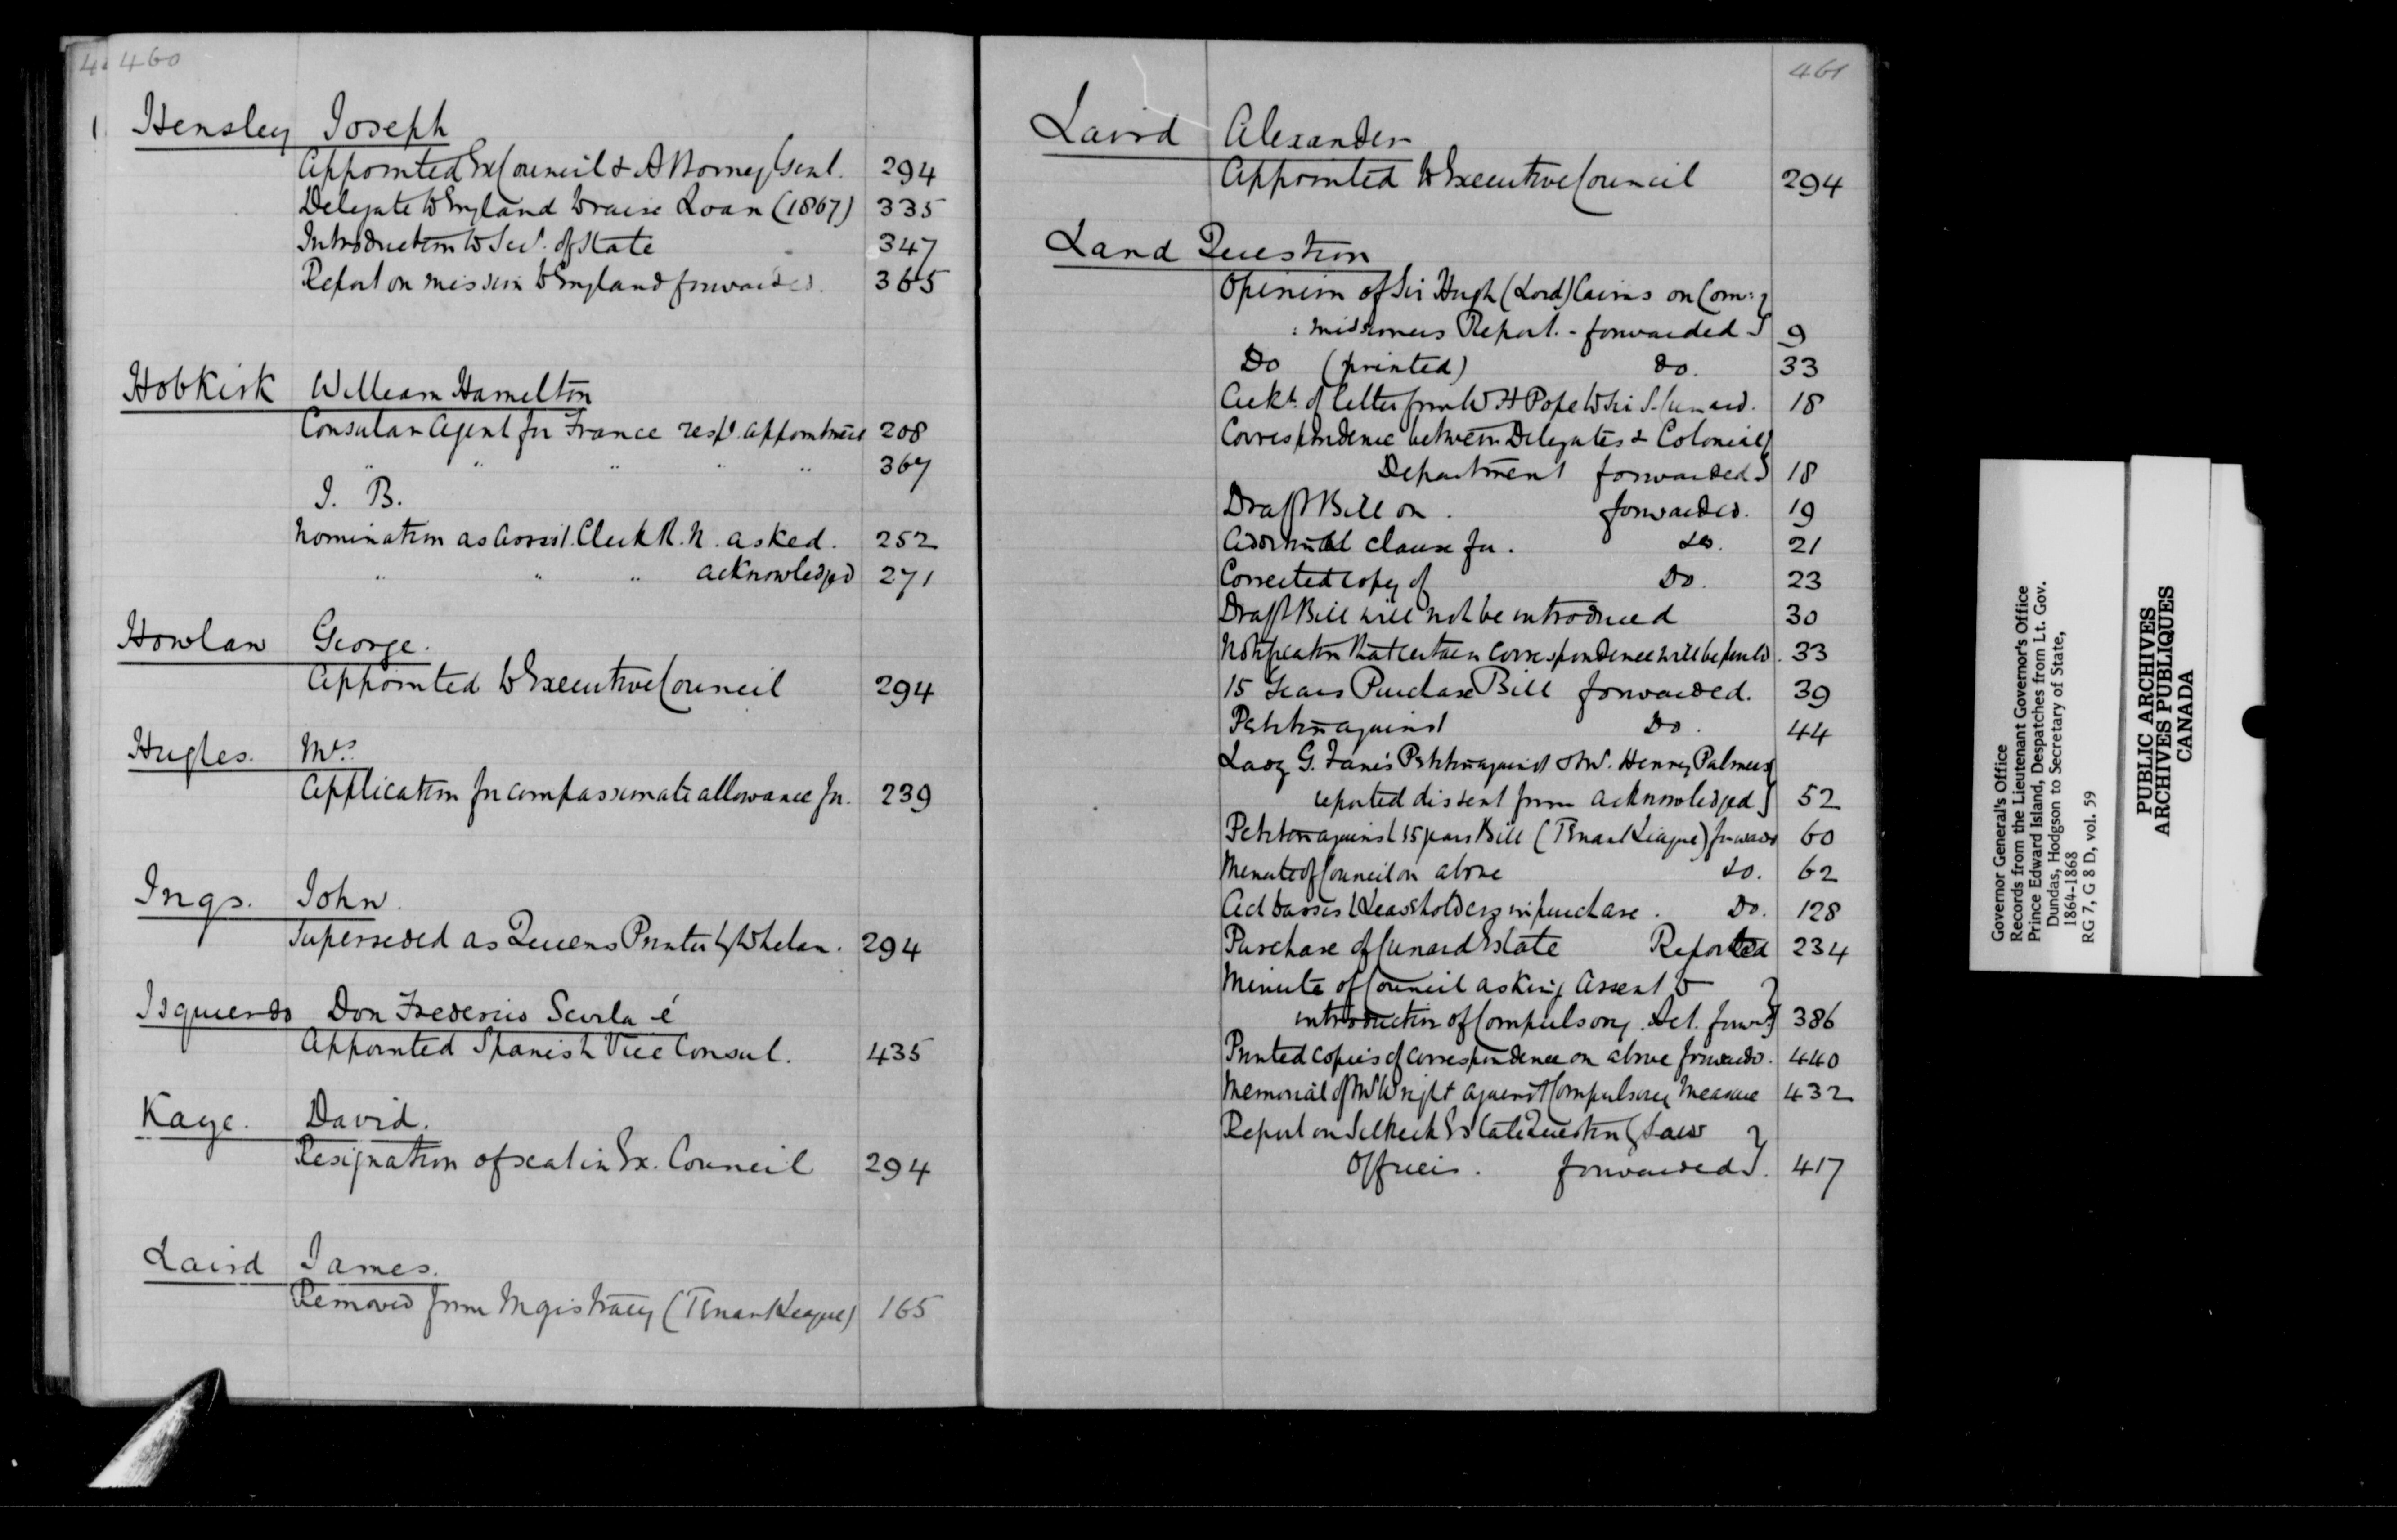 460
Hensley Joseph
Appointed Ex Council & Attorney Genl. 294
Delegate to England to raise Loan (1867) 335
Introduction to Secy. of State 347
Report on mission to England forwarded. 365
Hobkirk William Hamelton
Consular Agent for France resp. appointment 208
" " " " " 367
J. B.
Nomination as Assist. Clerk R. N. asked. 252
" " " acknowledged 271
Howlan George.
Appointed to Executive Council 294
Hughes. Mrs.
Application for compassionate allowance for. 239
Ings. John.
Superseded as Queens Printer by Whelan. 294
Isquierdo Don Frederico Sevila é
Appointed Spanish Vice Consul. 435
Kaye. David.
Resignation of seat in Ex. Council 294
Laird James.
Removed from Magistracy (Tenant League) 165
461
Laird Alexander
Appointed to Executive Council 294
Land Question
Opinion of Sir Hugh (Lord) Cairns on Com:
: missioners Report. - forwarded 9
Do (printed) Do. 33
Ackt. of letter from W H Pope to Sir S. Cunard. 18
Correspondence between Delegates & Colonial
Department forwarded 18
Draft Bill on . forwarded. 19
Additional clause for . do. 21
Corrected copy of Do. 23
Draft Bill will not be introduced 30
Notification that certain correspondence will be 33
15 Years Purchase Bill forwarded. 39
Petition against Do. 44
Lady G. Fane's Petition against & Mr. Henry Palmers
reported dissent from acknowledged 52
Petition against 15 years Bill (Tenant League) forwards 60
Minute of Council on above do. 62
Act to assist Leaseholders in purchase . Do. 128
Purchase of Cunard Estate Reported 234
Minute of Council asking Assent to
introduction of Compulsory Act. forwd 386
Printed copies of correspondence on above forwards. 440
Memorial of Mr Wright against Compulsory Measure 432
Report on Selkirk Estate Question by Law
Officers. forwarded. 417
Governor General's Office
Records from the Lieutenant Governor's Office
Prince Edward Island, Despatches from Lt. Gov.
Dundas, Hodgson to Secretary of State,
1864-1868
RG 7, G 8 D, vol. 59
PUBLIC ARCHIVES
ARCHIVES PUBLIQUES
CANADA